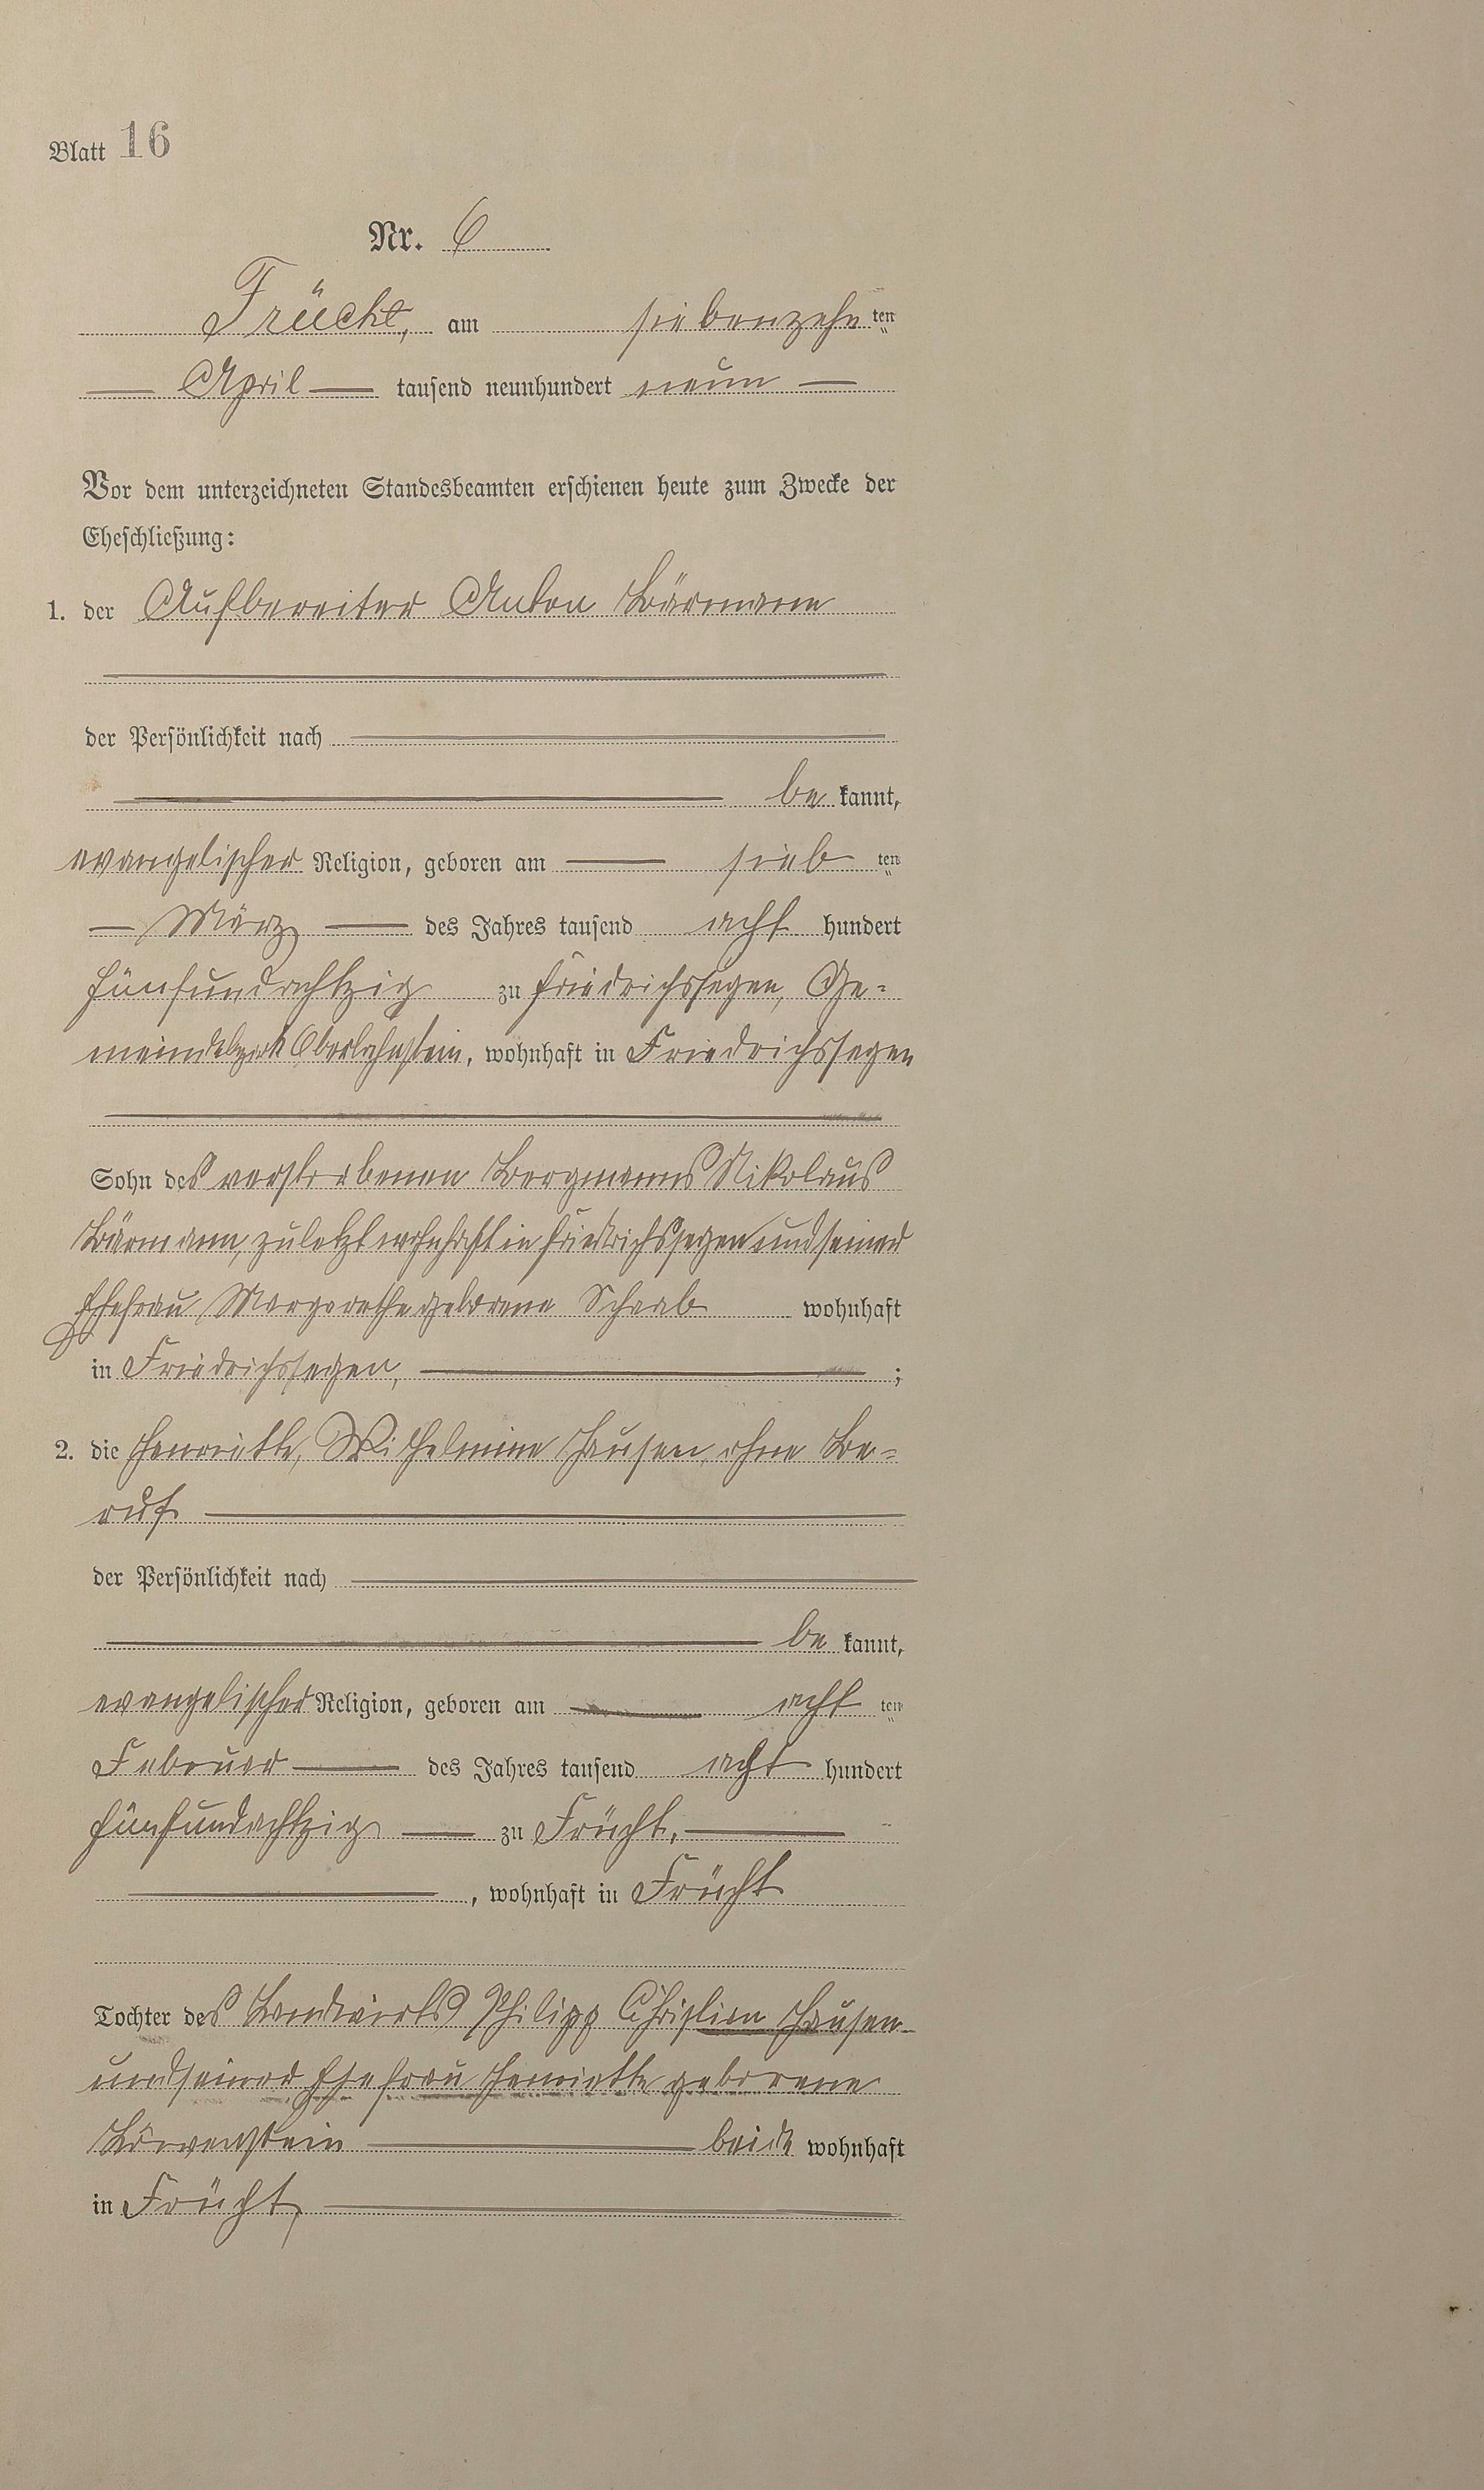 Blatt 16
Nr. 6
Frücht, am siebenzehn ten
April tausend neunhundert neun
Vor dem unterzeichneten Standesbeamten erschienen heute zum Zwecke der
Eheschließung:
1. der Aufbereiter Anton Bärmann
der Persönlichkeit nach
be kannt,
evangelischer Religion, geboren am sieb ten
März des Jahres tausend acht hundert
fünfundachtzig zu Friedrichssegen, Ge=
meindebezirk Oberlahnstein, wohnhaft in Friedrichssegen
Sohn des verstorbenen Bergmanns Nikolaus
Bärmann, zuletzt wohnhaft in Friedrichssegen und seiner
Ehefrau Margarethe geborene Schaab wohnhaft
in Friedrichssegen, ;
2. die Henriette, Wilhelmine Hausen, ohne Be=
ruf
der Persönlichkeit nach
be kannt,
evangelischer Religion, geboren am acht ten
Februar des Jahres tausend acht hundert
fünfundachtzig zu Frücht,
, wohnhaft in Frücht
Tochter des Landwirts Philipp Christian Hausen
und seiner Ehefrau Henriette geborene
Löwenstein beide wohnhaft
in Frücht,